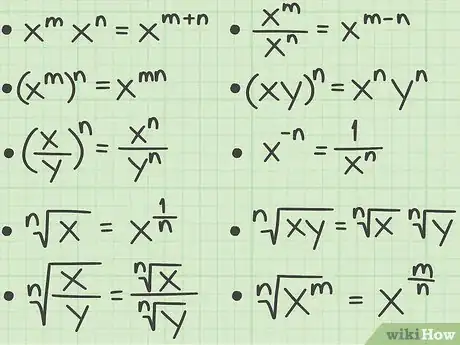 • x^m x^n = x^{m+n}
• x^m / x^n = x^{m-n}
• (x^m)^n = x^{mn}
• (xy)^n = x^n y^n
• (x/y)^n = x^n / y^n
• x^{-n} = 1 / x^n
• ⁿ√x = x^{1/n}
• ⁿ√xy = ⁿ√x ⁿ√y
• ⁿ√(x/y) = ⁿ√x / ⁿ√y
• ⁿ√x^m = x^{m/n}
wikiHow